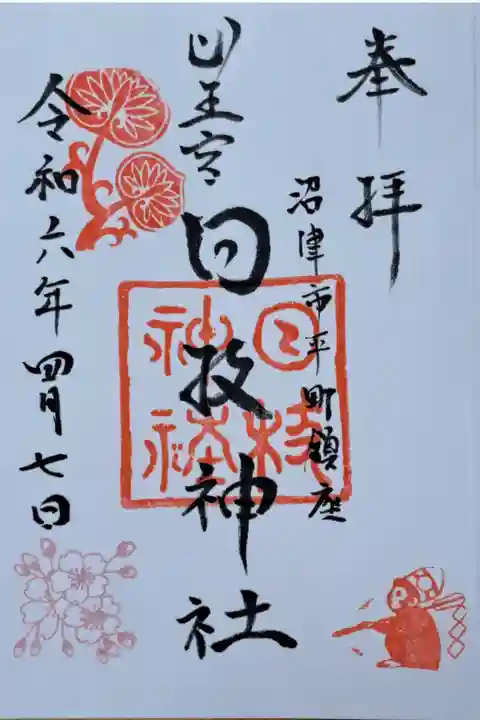 奉拝
沼津市平町鎮座
山王宮
日枝神社
日枝神社
令和六年四月七日